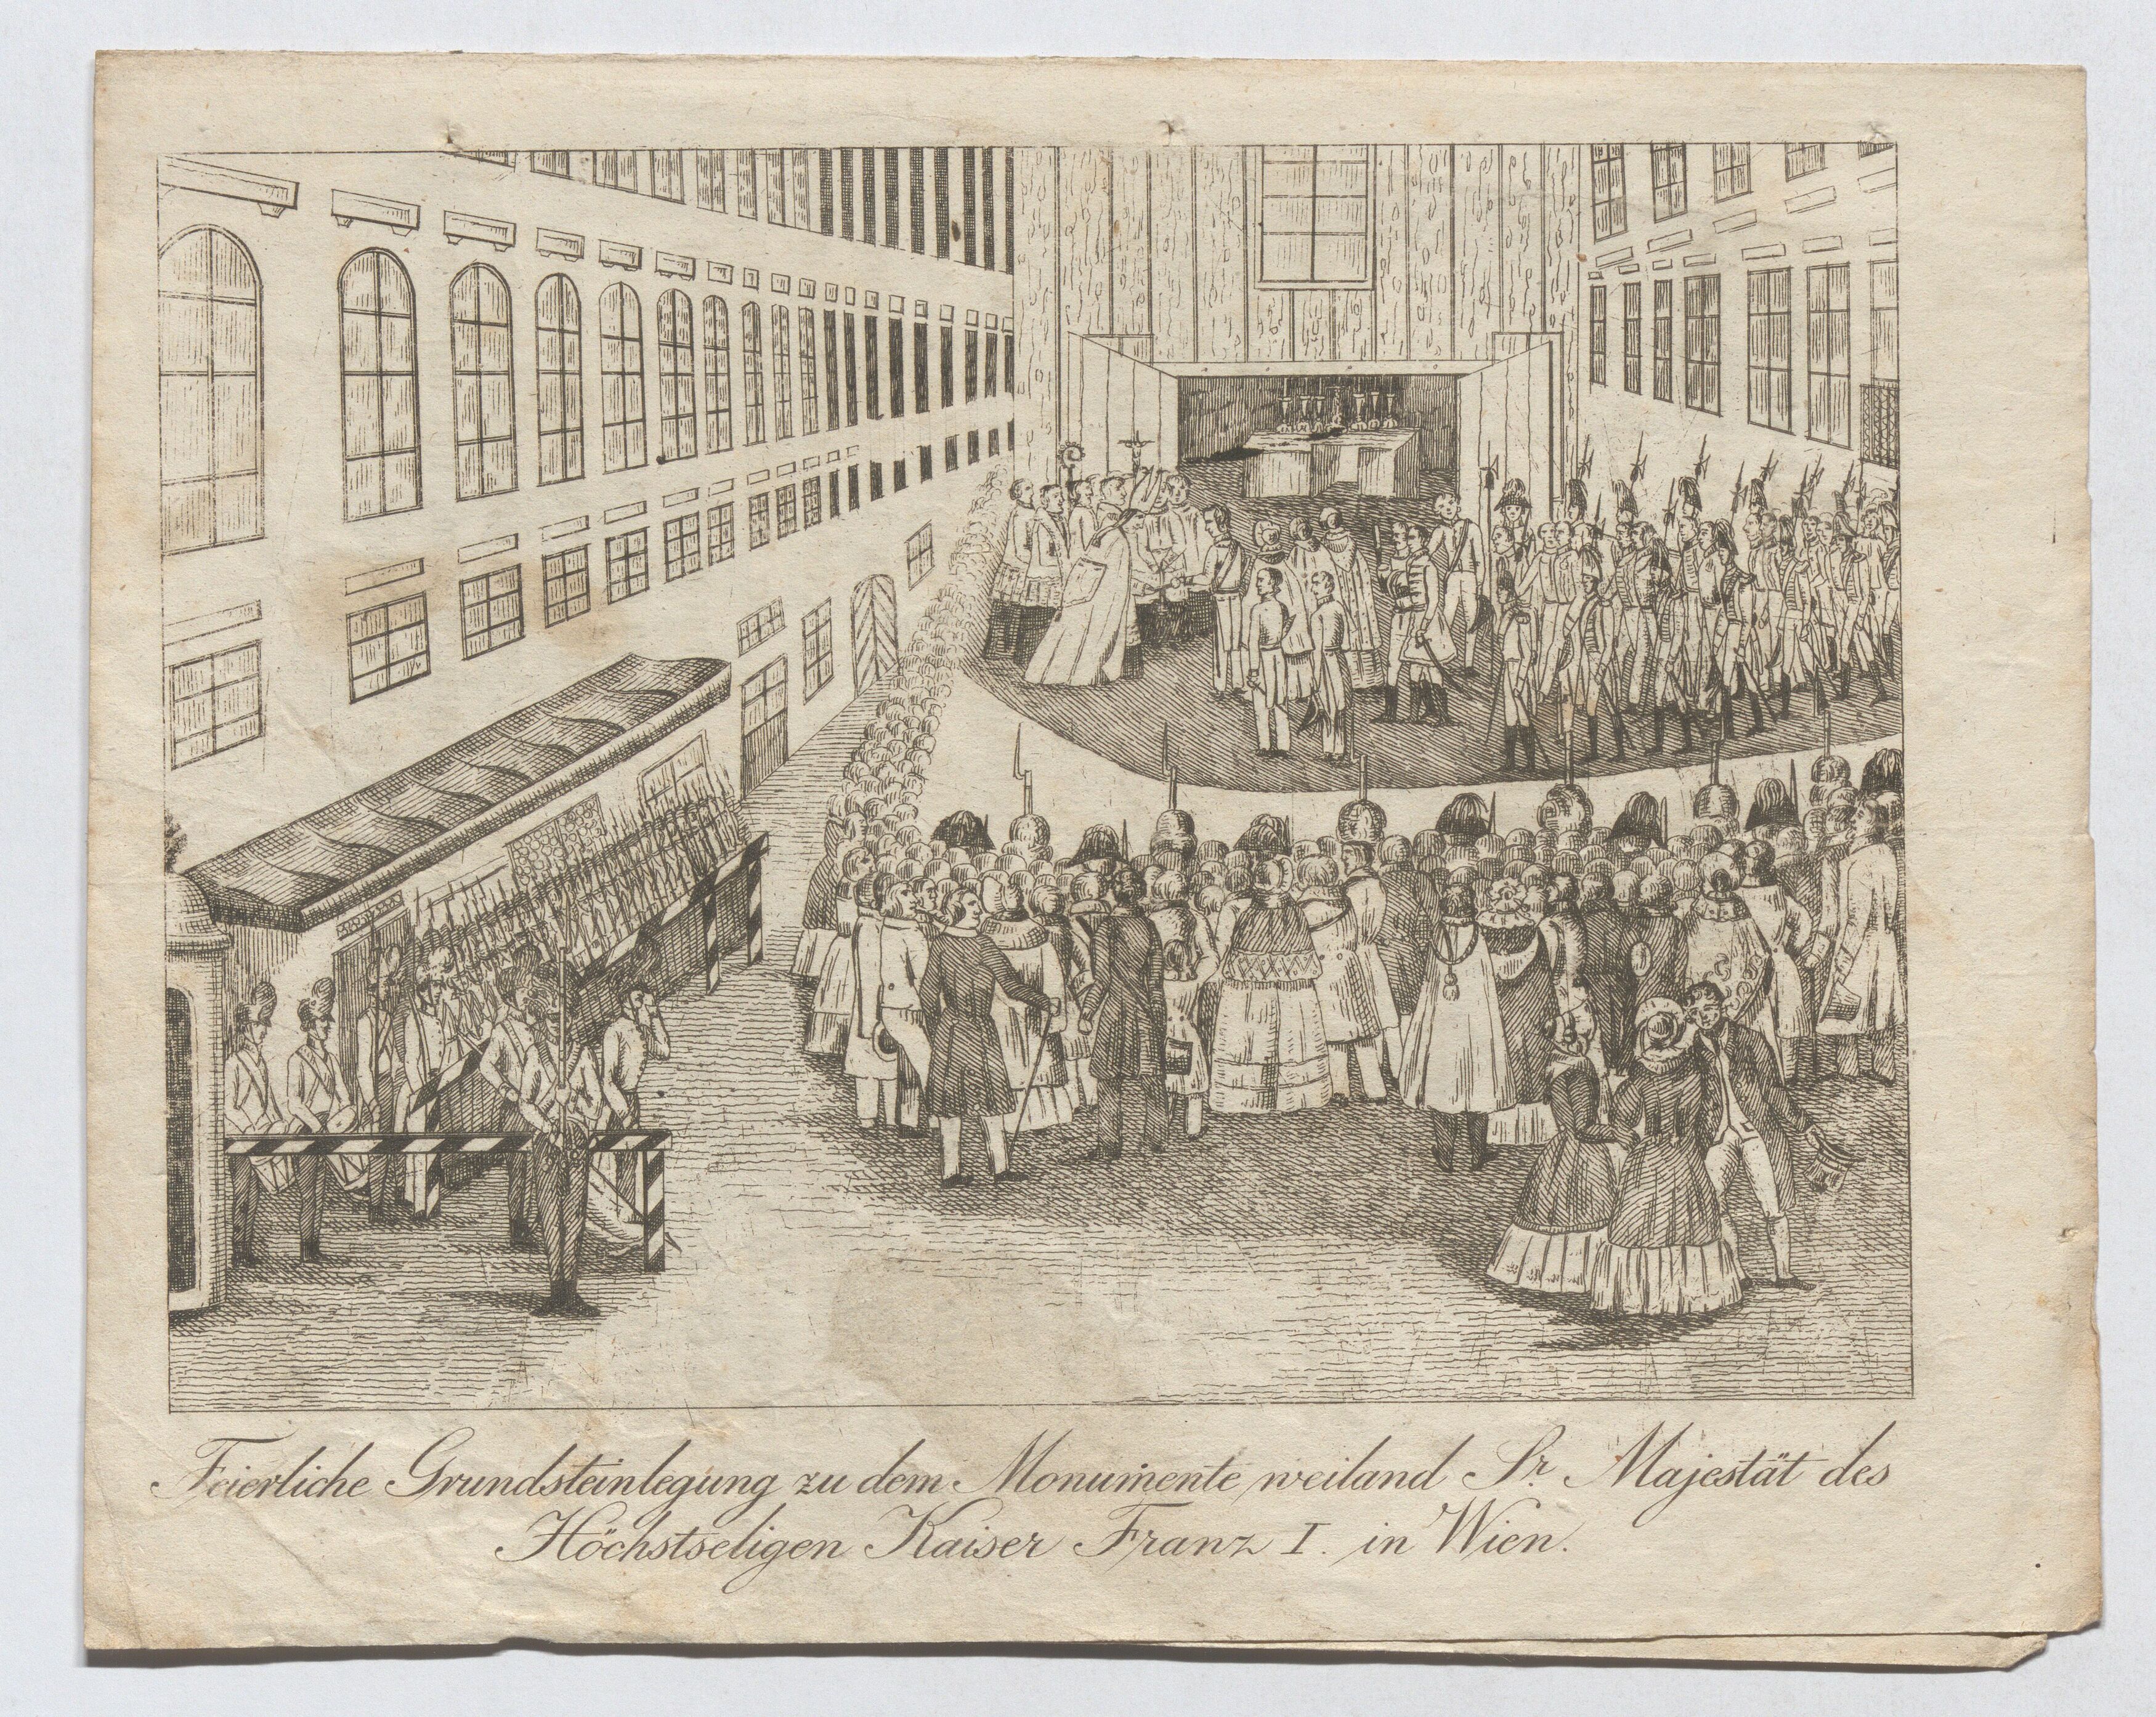 Feierliche Grundsteinlegung zu dem Monumente weiland Sr. Majestät des
Höchstseligen Kaiser Franz I. in Wien.